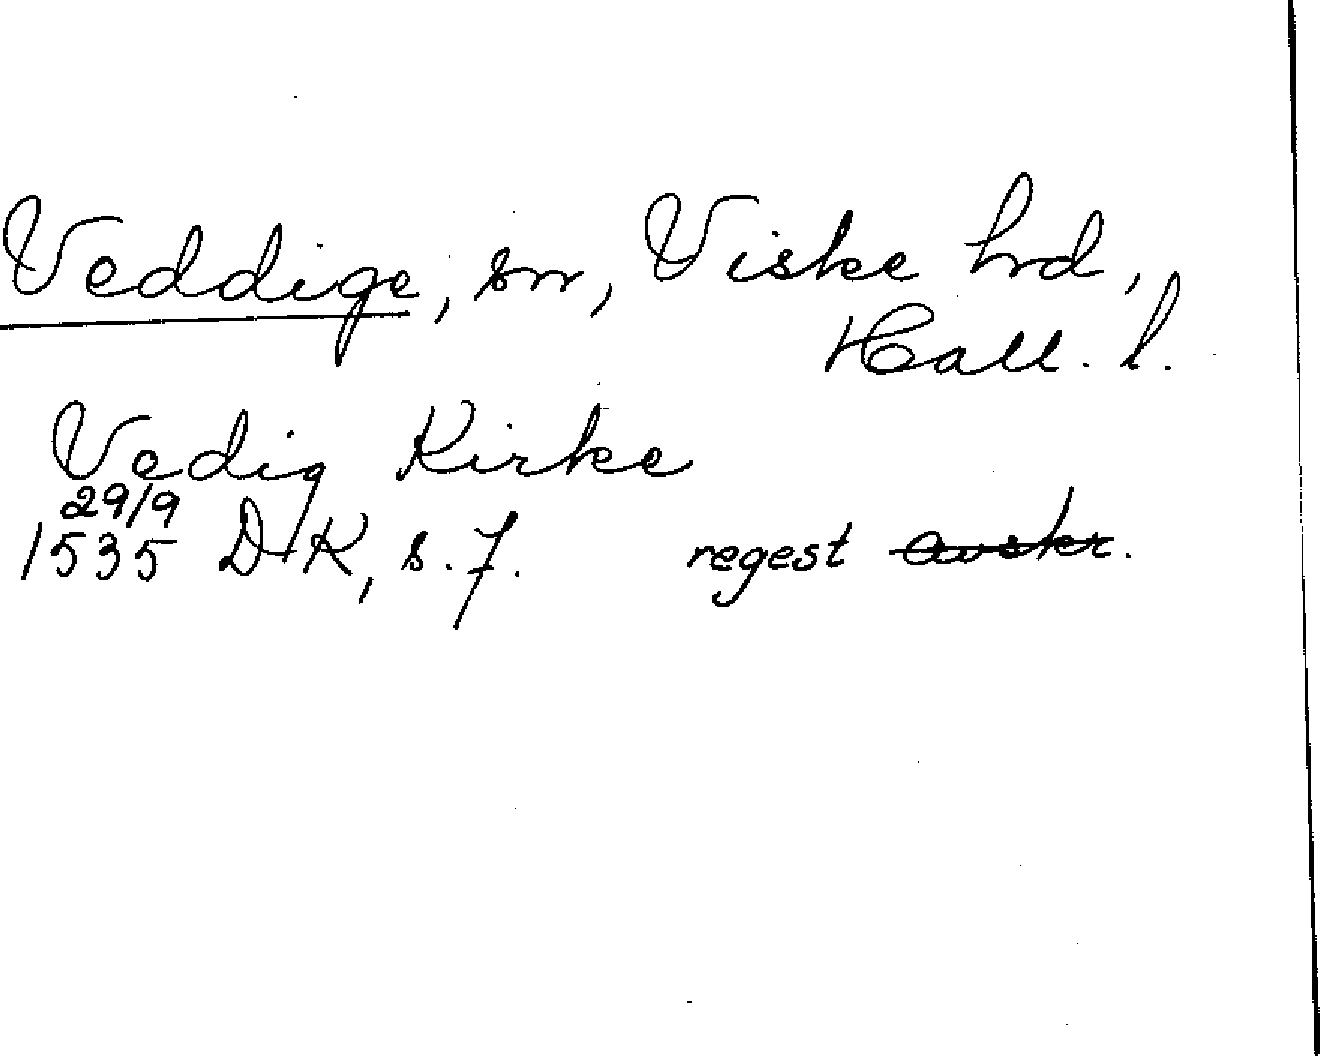 Veddige, sn, Viske hrd,
Hall. l.
Vedig Kirke
29/9
1535 DK, s. 7. regest avskr.